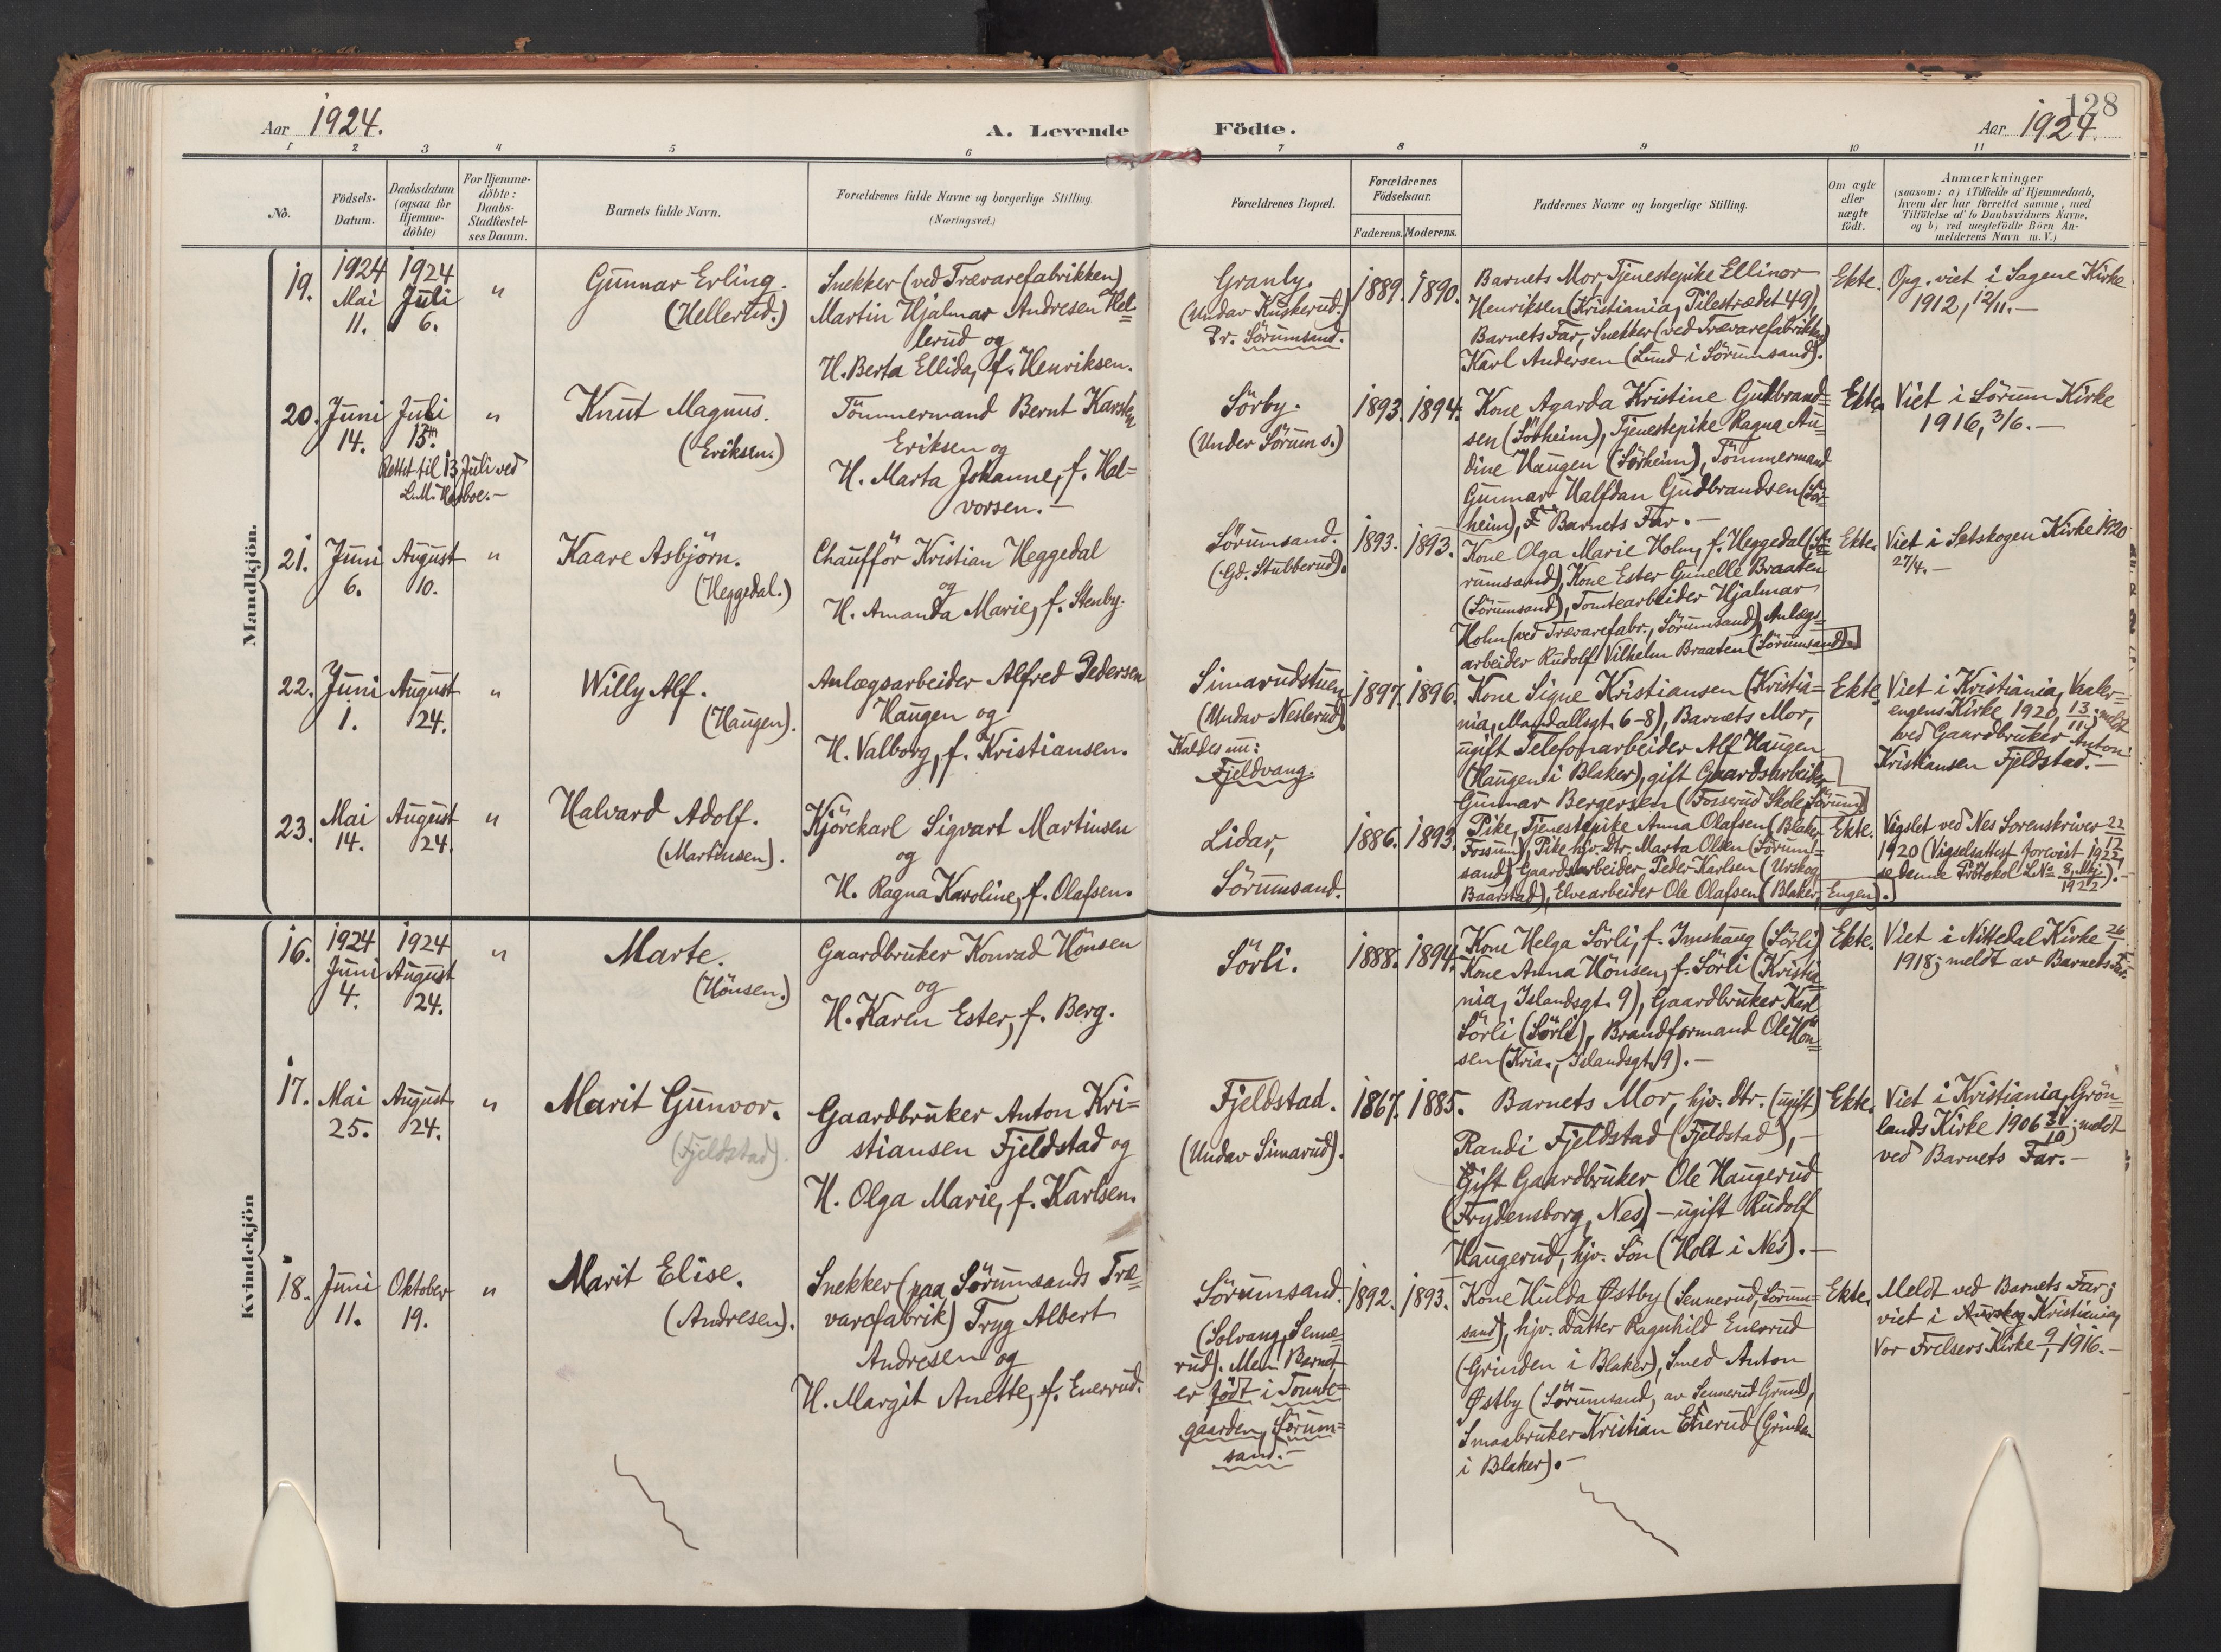 128
Aar 1924.
A. Levende Födte.
Aar 1924.
1 2 3 4 5 6 7 8 9 10 11
No.
Födsels-
Datum.
Daabsdatum
(ogsaa for
Hjemme-
döbte)
For Hjemme-
döbte:
Daabs-
Stadfæstel-
ses Datum.
Barnets fulde Navn.
Forældrenes fulde Navne og borgerlige Stilling.
(Næringsvei.)
Forældrenes Bopæl.
Forældrenes
Födselsaar.
Faderens. Moderens.
Faddernes Navne og borgerlige Stilling.
Om ægte
eller
uægte
födt.
Anmærkninger
(saasom: a) i Tilfælde af Hjemmedaab,
hvem der har forrettet samme, med
Tilföielse af to Daabsvidners Navne.
og b) ved uægtefödte Börn An-
melderens Navn m. V.)
Mandkjön.
19.
1924
Mai
11.
1924
Juli
6.
"
Gunnar Erling.
(Hellerud.)
Snekker (ved Trævarefabrikken)
Martin Hjalmar Andresen Hel=
lerud og
H. Berta Ellida, f. Henriksen.
Granly.
(Undav Kuskerud.)
Pr. Sörumsand.
1889. 1890.
Barnets Mor, Tjenestepike Ellinor
Henriksen (Kristiania, Pilestrædet 49),
Barnets Far, Snekker (ved Trævarefabrikken)
Karl Andersen (Lund i Sörumsand).
Ekte.
Opg. viet i Sagene Kirke
1912, 12/11.—
20.
Juni
14.
Juli
13.
Rettet til 13 Juli ved
L.M. Harboe.—
"
Knut Magnus.
(Eriksen.)
Tömmermand Bernt Karsten
Eriksen og
H. Marta Johanne, f. Hal=
vorsen.—
Sörby.
(Under Sörum s.)
1893. 1894.
Kone Agarda Kristine Gulbrand=
sen (Sörheim), Tjenestepike Ragna Au=
dine Haugen (Sörheim), Tömmermand
Gunnar Halfdan Gudbrandsen (Sör=
heim), Barnets Far.—
Ekte.
Viet i Sörum Kirke
1916, 3/6.—
21.
Juni
6.
August
10.
"
Kaare Asbjörn.
(Heggedal.)
Chaufför Kristian Heggedal
og
H. Amanda Marie, f. Stenby.
Sörumsand.
(Gd. Stubberud).
1893. 1893.
Kone Olga Marie Holm, f. Heggedal (Sö=
rumsand), Kone Ester Gunelle Braaten
(Sörumsand), Tomtearbeider Hjalmar
Holm (ved Trævarefabr., Sörumsand), Anlægs=
arbeider Rudolf Vilhelm Braaten (Sörumsand).
Ekte.
Viet i Setskogen Kirke 1920
27/4.—
22.
Juni
1.
August
24.
"
Willy Alf.
(Haugen).
Anlægsarbeider Alfred Pedersen
Haugen og
H. Valborg, f. Kristiansen.
Simarudstuen
(Undav Neslerud).
Kaldes nu:
Fjeldvang.
1897. 1896.
Kone Signe Kristiansen (Kristia=
nia, Mandallsgt. 6-8), Barnets Mor,
ugift Telefonarbeider Alf Haugen
(Haugen i Blaker), gift Gaardsarbeider
Gunnar Bergersen (Fosserud Skole, Sörum)
Ekte.
Viet i Kristiania, Vaaler=
engens Kirke 1920, 13/11; meldt
ved Gaardbruker Anton
Kristiansen Fjeldstad.—
23.
Mai
14.
August
24.
"
Halvard Adolf.
(Martinsen).
Kjörekarl Sigvart Martinsen
og
H. Ragna Karoline, f. Olafsen.
Lidar,
Sörumsand.
1886. 1893.
Pike, Tjenestepike Anna Olafsen (Blaker
Fossum), Pike hjv. Dtr. Marta Olsen (Sörum=
sand), Gaardsarbeider Peder Karlsen (Urskog
Baarstad), Elvearbeider Ole Olafsen (Blaker, Engen).
Ekte.
Vigslet ved Nes Sorenskriver 22/12
1920 (Vigselsattest forevist 1922,
se denne Protokol LNo 8, Mkj. 1922).—
Kvindekjön
16.
1924
Juni
4.
1924
August
24.
"
Marte.
(Hönsen.)
Gaardbruker Konrad Hönsen
og
H. Karen Ester, f. Berg.
Sörli.
1888. 1894.
Kone Helga Sörli, f. Imshaug (Sörli)
Kone Anna Hönsen, f. Sörli (Kristia=
nia, Islandsgt. 9), Gaardbruker Karl
Sörli (Sörli), Brandformand Ole Hön=
sen (Kria., Islandsgt. 9).—
Ekte.
Viet i Nittedal Kirke 26/1
1918; meldt av Barnets Far.
17.
Mai
25.
August
24.
"
Marit Gunvor.
(Fjeldstad).
Gaardbruker Anton Kri=
stiansen Fjeldstad og
H. Olga Marie, f. Karlsen.
Fjeldstad.
(Undav Simarud).
1867. 1885.
Barnets Mor, hjv. dtr. (ugift)
Randi Fjeldstad (Fjeldstad),—
Gift Gaardbruker Ole Haugerud
(Frydensborg, Nes) — ugift Rudolf
Haugerud, hjv. Sön (Holt i Nes).—
Ekte.
Viet i Kristiania, Grön=
lands Kirke 1906 31/10; meldt
ved Barnets Far.—
18.
Juni
11.
Oktober
19.
"
Marit Elise.
(Andresen).
Snekker (paa Sörumsands Træ=
varefabrik) Tryg Albert
Andresen og
H. Margit Anette, f. Enerud.
Sörumsand.
(Solvang, Senne=
rud). Men Barnet
er födt i Tomte=
gaarden, Sörum=
sand.—
1892. 1893.
Kone Hulda Østby (Sennerud, Sörum=
sand), hjv. Datter Ragnhild Enerud
(Grinden i Blaker), Smed Anton
Østby (Sörumsand, av Sennerud Grund),
Smaabruker Kristian Enerud (Grinden
i Blaker).—
Ekte.
Meldt ved Barnets Far;
viet i Aurskog Kristiania,
Vor Frelsers Kirke 9/1 1916.—